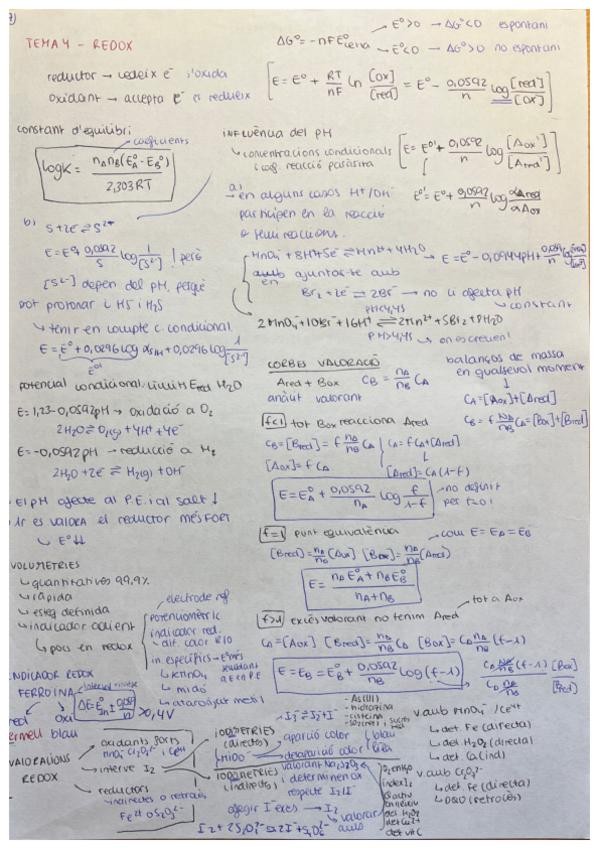 TEMA 4 - REDOX
reductor → cedeix e⁻ s'oxida
oxidant → accepta e⁻ es redueix
ΔG° = -nFE°cel·la
E°>0 → ΔG°<0 espontani
E°<0 → ΔG°>0 no espontani
[E = E° + RT/nF ln [Ox]/[red] = E° - 0,0592/n log [red]/[Ox]]
constant d'equilibri
coeficients
logK = nAnB(E°A - E°B) / 2,303RT
b) S + 2e ⇌ S²⁻
E = E° + 0,0592/S log 1/[S²⁻] ! però
[S²⁻] depen del pH, perquè
pot protonar i HS⁻ i H₂S
↳ tenir en compte c. condicional
E = E° + 0,0296 log αS/H + 0,0296 log 1/[S²⁻]
E°'
potencial condicional límit Ered H₂O
E = 1,23 - 0,0592pH → oxidació a O₂
2H₂O ⇌ O₂(g) + 4H⁺ + 4e⁻
E = -0,0592pH → reducció a H₂
2H₂O + 2e⁻ ⇌ H₂(g) + OH⁻
El pH afecte al P.E. i al salt ↓
si es valora el reductor més FORT
↳ E°↓↓
VOLUMETRIES
↳ quantitatives 99,9%
↳ ràpida
↳ esteq definida
↳ indicador adient
↳ pocs en redox
electrode ref
potenciomètric
indicador red.
↳ dif. color R/O
in. específics
↳ KMnO₄
↳ midó
INDICADOR REDOX
FERROÏNA
red oxi
vermell blau
ΔE = E°In ± 0,059/n > 0,4V
VALORACIONS REDOX
oxidants forts
MnO₄⁻ Cr₂O₇²⁻ i Ce⁴⁺
interve I₂
reductors
indirectes o retrocés
Fe²⁺ o S₂O₃²⁻
INFLUÈNCIA del PH
↳ concentracions condicionals
i coef. reacció paràsita
[E = E°' + 0,0592/n log [Aox']/[Ared']]
E°' = E° + 0,0592/n log αAred/αAox
a) → en alguns casos H⁺/OH⁻
participen en la reacció
o semireaccions.
MnO₄⁻ + 8H⁺ + 5e⁻ ⇌ Mn²⁺ + 4H₂O → E = E° - 0,0944pH +
amb ajuntar-te amb
en Br₂ + 2e⁻ ⇌ 2Br⁻ → no li afecta pH
constant
2MnO₄⁻ + 10Br⁻ + 16H⁺ ⇌ 2Mn²⁺ + 5Br₂ + 8H₂O
CORBES VALORACIÓ
Ared + Box
anàlit valorant
CB = nA/nB CA
balanços de massa
en qualsevol moment
CA = [Aox] + [Ared]
CB = f nA/nB CA = [Box] + [Bred]
f<1 tot Box reacciona Ared
CB = [Bred] = f nA/nB CA
CA = fCA + [Ared]
[Aox] = f CA
[Ared] = CA(1-f)
E = E°A + 0,0592/nA log f/1-f
→ no definit
per f=0!
f=1 punt equivalència
com E = EA = EB
[Bred] = nA/nB [Aox] [Box] = nA/nB [Ared]
E = nAE°A + nBE°B / nA + nB
f>1 excés valorant no tenim Ared
tot a Aox
CA = [Aox] [Bred] = nA/nB CA [Box] = CA nA/nB (f-1)
E = EB = E°B + 0,0592/nB log(f-1)
IODIMETRIES
(directes)
midó
aparició color blau
desaparició color
I₃⁻ ⇌ I₂ + I⁻
- As(III)
- hidrazina
- cisteïna
IODOMETRIES
(indirectes)
valorant Na₂S₂O₃
i determinen ox
respecte I₂/I⁻
afegir I⁻ excés → I₂
valorar
amb
I₂ + 2S₂O₃²⁻ ⇌ 2I⁻ + S₄O₆²⁻
det vit C
v.amb MnO₄⁻/Ce⁴⁺
↳ det. Fe (directa)
↳ det. H₂O₂ (directa)
↳ det. Ca (ind)
v.amb Cr₂O₇²⁻
↳ det. Fe (directa)
↳ DQO (retrocés)